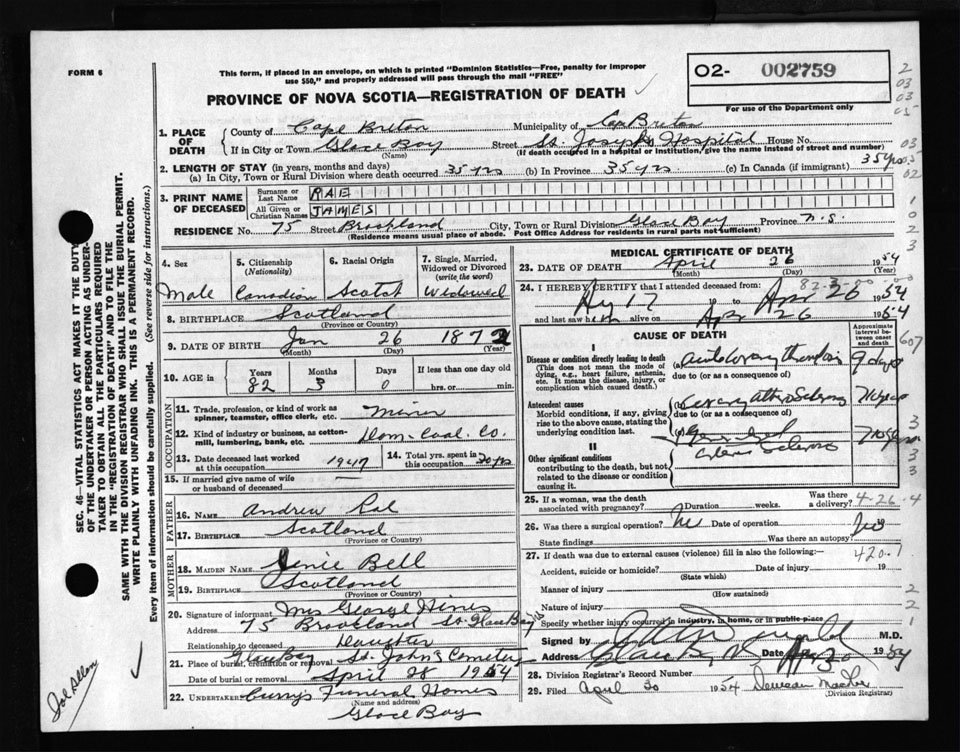 FORM 6
This form, if placed in an envelope, on which is printed "Dominion Statistics—Free, penalty for improper
use $50," and properly addressed will pass through the mail "FREE"
O2- 002759
For use of the Department only
PROVINCE OF NOVA SCOTIA—REGISTRATION OF DEATH
1. PLACE OF DEATH
County of Cape Breton Municipality of Cape Breton
If in City or Town Glace Bay Street St. Joseph's Hospital House No.
(Name) (If death occurred in a hospital or institution, give the name instead of street and number)
2. LENGTH OF STAY (in years, months and days)
(a) In City, Town or Rural Division where death occurred 35 yrs (b) In Province 35 yrs. (c) In Canada (if immigrant) 35 yrs
3. PRINT NAME OF DECEASED
Surname or Last Name RAE
All Given or Christian Names JAMES
RESIDENCE No. 75 Street Brookland City, Town or Rural Division Glace Bay Province N.S.
(Residence means usual place of abode. Post Office Address for residents in rural parts not sufficient)
4. Sex Male
5. Citizenship (Nationality) Canadian
6. Racial Origin Scotch
7. Single, Married, Widowed or Divorced (write the word) Widowed
8. BIRTHPLACE Scotland
(Province or Country)
9. DATE OF BIRTH Jan 26 1872
(Month) (Day) (Year)
10. AGE in Years Months Days If less than one day old
82 3 0 hrs. or min.
OCCUPATION
11. Trade, profession, or kind of work as spinner, teamster, office clerk, etc. Miner
12. Kind of industry or business, as cotton-mill, lumbering, bank, etc. Dom. Coal. Co.
13. Date deceased last worked at this occupation 1947
14. Total yrs. spent in this occupation 20 yrs
15. If married give name of wife or husband of deceased —
FATHER
16. NAME Andrew Rae
17. BIRTHPLACE Scotland
(Province or Country)
MOTHER
18. MAIDEN NAME Jenie Bell
19. BIRTHPLACE Scotland
(Province or Country)
20. Signature of informant Mrs George Hines
Address 75 Brookland St. Glace Bay
Relationship to deceased Daughter
21. Place of burial, cremation or removal Glace Bay St. John's Cemetery
Date of burial or removal April 28 1954
22. UNDERTAKER Curry's Funeral Homes
(Name and address)
Glace Bay
MEDICAL CERTIFICATE OF DEATH
23. DATE OF DEATH April 26 1954
(Month) (Day) (Year)
24. I HEREBY CERTIFY that I attended deceased from:
17 19 to Apr 26 1954
and last saw him alive on Apr 26 1954
CAUSE OF DEATH
Approximate interval between onset and death
I
Disease or condition directly leading to death
(This does not mean the mode of dying, e.g., heart failure, asthenia, etc. It means the disease, injury, or complication which caused death.)
(a) 9 days
due to (or as a consequence of)
Antecedent causes
Morbid conditions, if any, giving rise to the above cause, stating the underlying condition last.
(b)
due to (or as a consequence of)
(c)
II
Other significant conditions
contributing to the death, but not related to the disease or condition causing it.
25. If a woman, was the death associated with pregnancy? Duration weeks. Was there a delivery?
4-26-4
26. Was there a surgical operation? No Date of operation
State findings Was there an autopsy?
27. If death was due to external causes (violence) fill in also the following:—
420.1
Accident, suicide or homicide? Date of injury 19
(State which)
Manner of injury
(How sustained)
Nature of injury
Specify whether injury occurred in industry, in home, or in public place
Signed by M.D.
Address Glace Bay Date Apr 30 1954
28. Division Registrar's Record Number
29. Filed April 30 1954
(Division Registrar)
SEC. 46—VITAL STATISTICS ACT MAKES IT THE DUTY
OF THE UNDERTAKER OR PERSON ACTING AS UNDER-
TAKER TO OBTAIN ALL THE PARTICULARS REQUIRED
IN THE "REGISTRATION OF DEATH" AND TO FILE THE
SAME WITH THE DIVISION REGISTRAR WHO SHALL ISSUE THE BURIAL PERMIT.
WRITE PLAINLY WITH UNFADING INK. THIS IS A PERMANENT RECORD.
Every item of information should be carefully supplied. (See reverse side for instructions.)
607